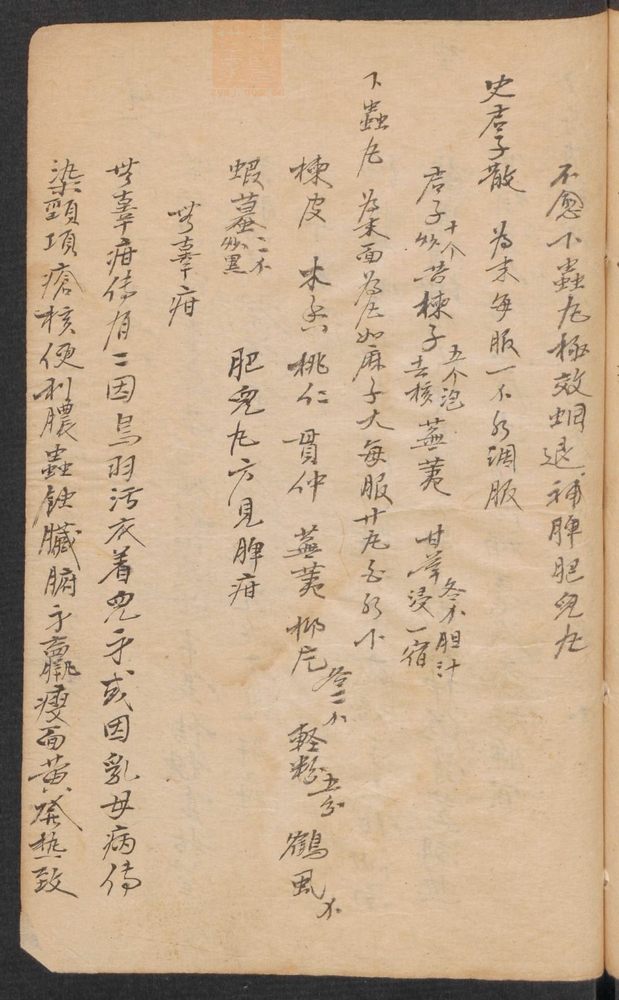 不愈下蟲丸極效蛔退補脾肥兒丸
史君子散 為末每服一不水調服
君子十个炒苦楝子五个泡去核蕪荑 甘草各不胆汁浸一宿
下蟲丸 為末面為丸如麻子大每服廿丸白水下
楝皮 木香 桃仁 貫仲 蕪荑 梹尼各二不 軽粉五分 鶴虱不
蝦蟇二不炒黑 肥兒丸方見脾疳
無辜疳
無辜疳傳有二因鳥羽汚衣着兒子或因乳母病傳
染頸項瘡核便利膿蟲蝕臟腑子羸瘦面黄發熱致